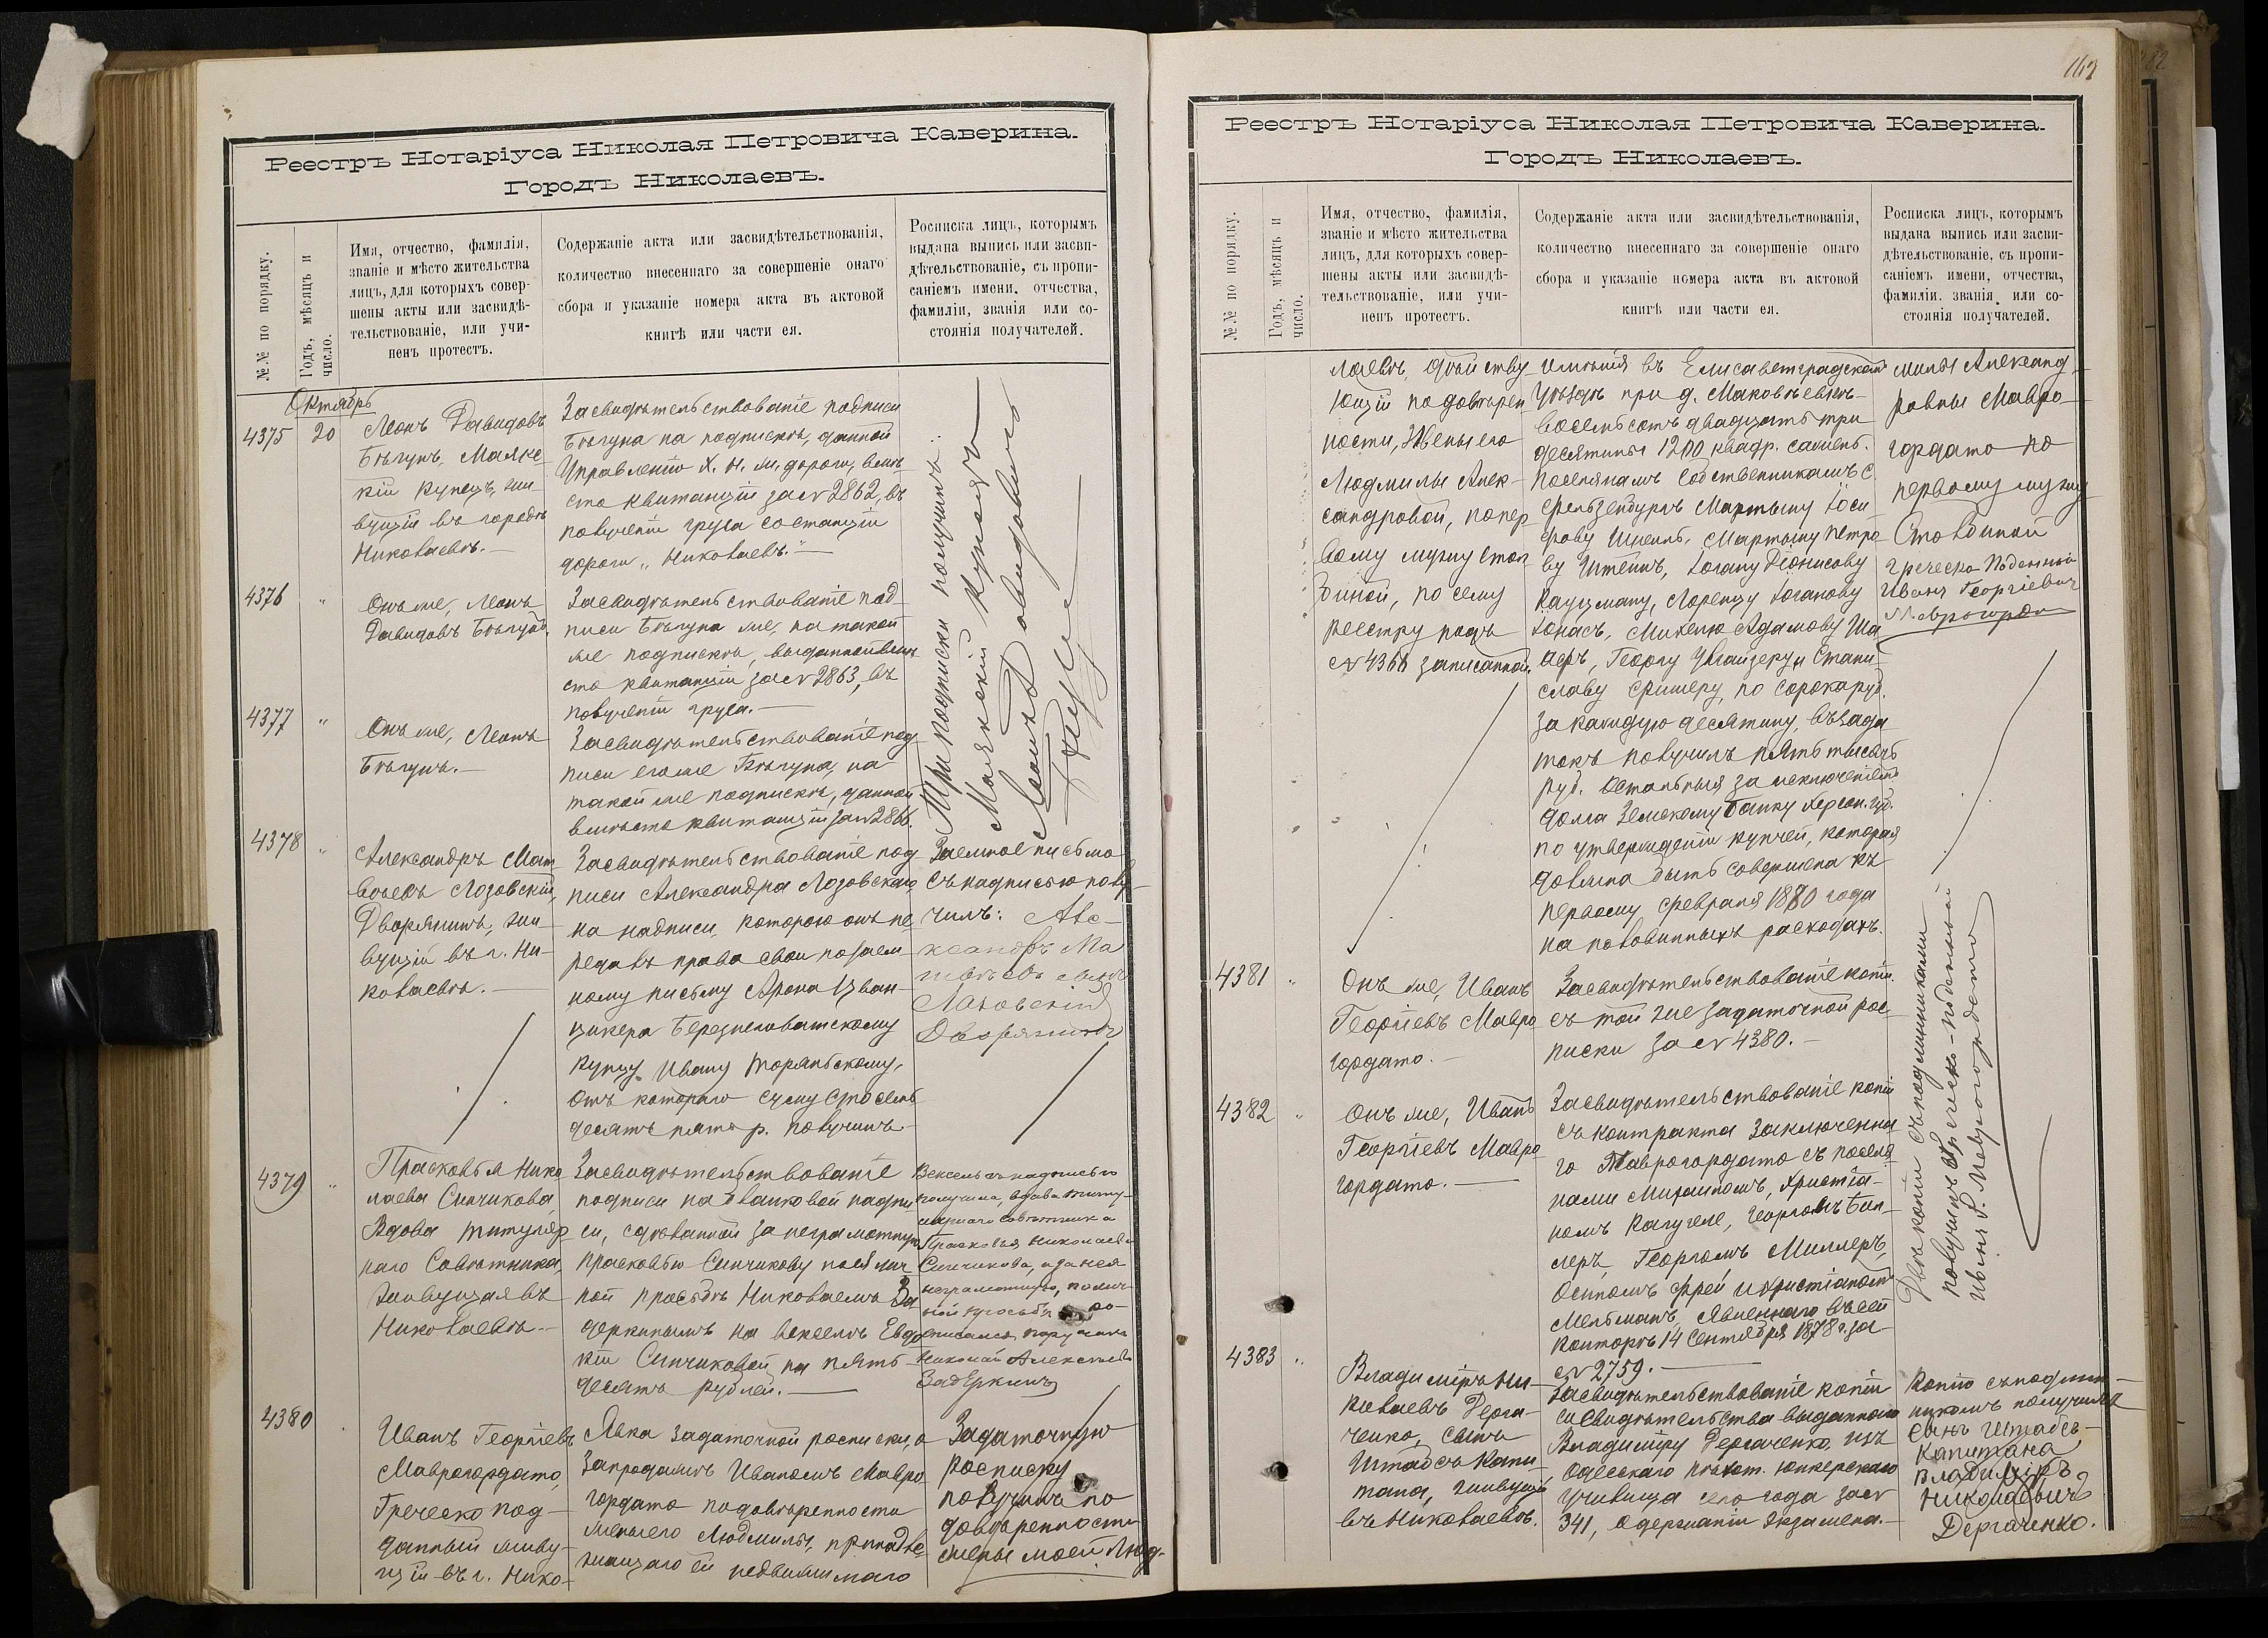 Реестръ Нотаріуса Николая Петровича Каверина.
Городъ Николаевъ.
№.№ по порядку.
Годъ, мѣсяцъ и
число.
Имя, отчество, фамилія,
званіе и мѣсто жительства
лицъ, для которыхъ совер-
шены акты или засвидѣ-
тельствованіе, или учи-
ненъ протестъ.
Содержаніе акта или засвидѣтельствованія,
количество внесеннаго за совершеніе онаго
сбора и указаніе номера акта въ актовой
книгѣ или части ея.
Росписка лицъ, которымъ
выдана выпись или засви-
дѣтельствованіе, съ пропи-
саніемъ имени, отчества,
фамиліи, званія или со-
стоянія получателей.
Октябрь
4375
20
Леонъ Давидовъ
Бѣгунъ, Маякс-
кій купецъ, жи-
вущій въ городѣ
Николаевѣ.—
Засвидѣтельствованіе подписи
Бѣгуна на подпискѣ, данной
Управленію Х. Н. ж. дороги, вмѣ-
сто квитанціи за № 2862, въ
полученіи груза со станціи
дороги „Николаевъ."—
Три подписки получилъ:
Маякскій Купецъ
Леонъ Давидовичъ
4376
"
Онъ же, Леонъ
Давидовъ Бѣгунъ.
Засвидѣтельствованіе под-
писи Бѣгуна же, на такой
же подпискѣ, выданной вмѣ-
сто квитанціи за № 2863, въ
полученіи груза.—
4377
"
Онъ же, Леонъ
Бѣгунъ.—
Засвидѣтельствованіе под-
писи его же Бѣгуна, на
такой же подпискѣ, данной
вмѣсто квитанціи за № 2866.
4378
"
Александръ Мат-
вѣевъ Лозовскій,
Дворянинъ, жи-
вущій въ г. Ни-
колаевѣ.—
Засвидѣтельствованіе под-
писи Александра Лозовскаго
на надписи, которою онъ пе-
редалъ права свои по заем-
ному письму Арона Цван-
цикера Березнеговатскому
купцу Ивану Торянскому,
отъ котораго сумму сто семь-
десятъ пять р. получилъ.
Заемное письмо
съ надписью полу-
чилъ: Але-
ксандръ Ма
твѣевъ сынъ
Лозовскій
Дворянинъ
4379
"
Прасковья Нико-
лаева Синчикова,
Вдова титуляр-
наго Совѣтника,
живущая въ
Николаевѣ.—
Засвидѣтельствованіе
подписи на бланковой надпи-
си, сдѣланной за неграмотную
Прасковью Синчикову по ея лич-
ной просьбѣ Николаемъ За-
деркинымъ на векселѣ Евдо-
кіи Синчиковой на пять-
десятъ рублей.—
Вексель съ надписью
получила, вдова титу-
лярнаго Совѣтника
Прасковья Николаева
Синчикова, а за нея
неграмотную, по лич-
ной просьбѣ ро-
списался поручикъ
Николай Алексѣевъ
Задеркинъ
4380
Иванъ Георгіевъ
Маврогордато,
Греческо-под-
данный живу-
щій въ г. Нико-
Явка задаточной росписки, о
запродажѣ Иваномъ Мавро
гордато по довѣренности
жены его Людмилы, принадле-
жащаго ей недвижимаго
Задаточную
росписку
получилъ по
довѣренности
жены моей Люд-
162
Реестръ Нотаріуса Николая Петровича Каверина.
Городъ Николаевъ.
№.№ по порядку.
Годъ, мѣсяцъ и
число.
Имя, отчество, фамилія,
званіе и мѣсто жительства
лицъ, для которыхъ совер-
шены акты или засвидѣ-
тельствованіе, или учи-
ненъ протестъ.
Содержаніе акта или засвидѣтельствованія,
количество внесеннаго за совершеніе онаго
сбора и указаніе номера акта въ актовой
книгѣ или части ея.
Росписка лицъ, которымъ
выдана выпись или засви-
дѣтельствованіе, съ пропи-
саніемъ имени, отчества,
фамиліи, званія или со-
стоянія получателей.
лаевѣ, дѣйству-
ющій по довѣрен-
ности, жены его
Людмилы Алек-
сандровой, по пер-
вому мужу Стол-
биной, по сему
реестру подъ
№ 4366 записанной.
имѣнія въ Елисаветградскомъ
Уѣздѣ при д. Маковѣевкѣ
восемьсотъ двадцать три
десятины 1200 квадр. сажень.
поселянамъ собственникамъ с.
Мартыну Іоси-
фову Мартыну Петро-
ву Штейнъ, Іогану Діонисову
Кауцману, Лоренцу Іоганову
Іонасъ, Михелю Адамову Ша-
феръ, Георгу и Стани-
славу по сорока руб.
за каждую десятину, въ зада-
токъ получилъ пять тысячъ
руб. остальныя за исключеніемъ
долга Земскому банку Херсон. губ.
по утвержденіи купчей, которая
должна быть совершена къ
первому февраля 1880 года
на половинныхъ расходахъ.
милы Александ-
ровны Мавро-
гордато по
первому мужу
Столбиной
греческо-подданный
Иванъ Георгіевичъ
Маврогордато
4381
"
Онъ же, Иванъ
Георгіевъ Мавро
гордато.—
Засвидѣтельствованіе копіи
съ той же задаточной рос-
писки за № 4380.—
4382
"
Онъ же, Иванъ
Георгіевъ Мавро
гордато.—
Засвидѣтельствованіе копіи
съ контракта заключенна
го Маврогордато съ поселя-
нами Михаиломъ, Христіа-
номъ Георгомъ Бил-
леръ, Георгомъ Миллеръ,
Осипомъ Фрей и Христіаномъ
Мельманъ, явленнаго въ сей
Конторѣ 14 Сентября 1878 г. за
№ 2759.—
Двѣ копіи съ подлинниками
получилъ Греческо-подданный
Иванъ Г. Маврогордато
4383
"
Владиміръ Ни-
колаевъ Дерга-
ченко, сынъ
Штабсъ-Капи-
тана, живущій
въ Николаевѣ.
Засвидѣтельствованіе копіи
съ Свидѣтельства выданнаго
Владиміру Дергаченко, изъ
Одесскаго пѣхот. Юнкерскаго
Училища сего года за №
341, о держаніи экзамена.—
Копію съ подлин-
никомъ получилъ
Сынъ Штабсъ-
Капитана
Владиміръ
Николаевичъ
Дергаченко.